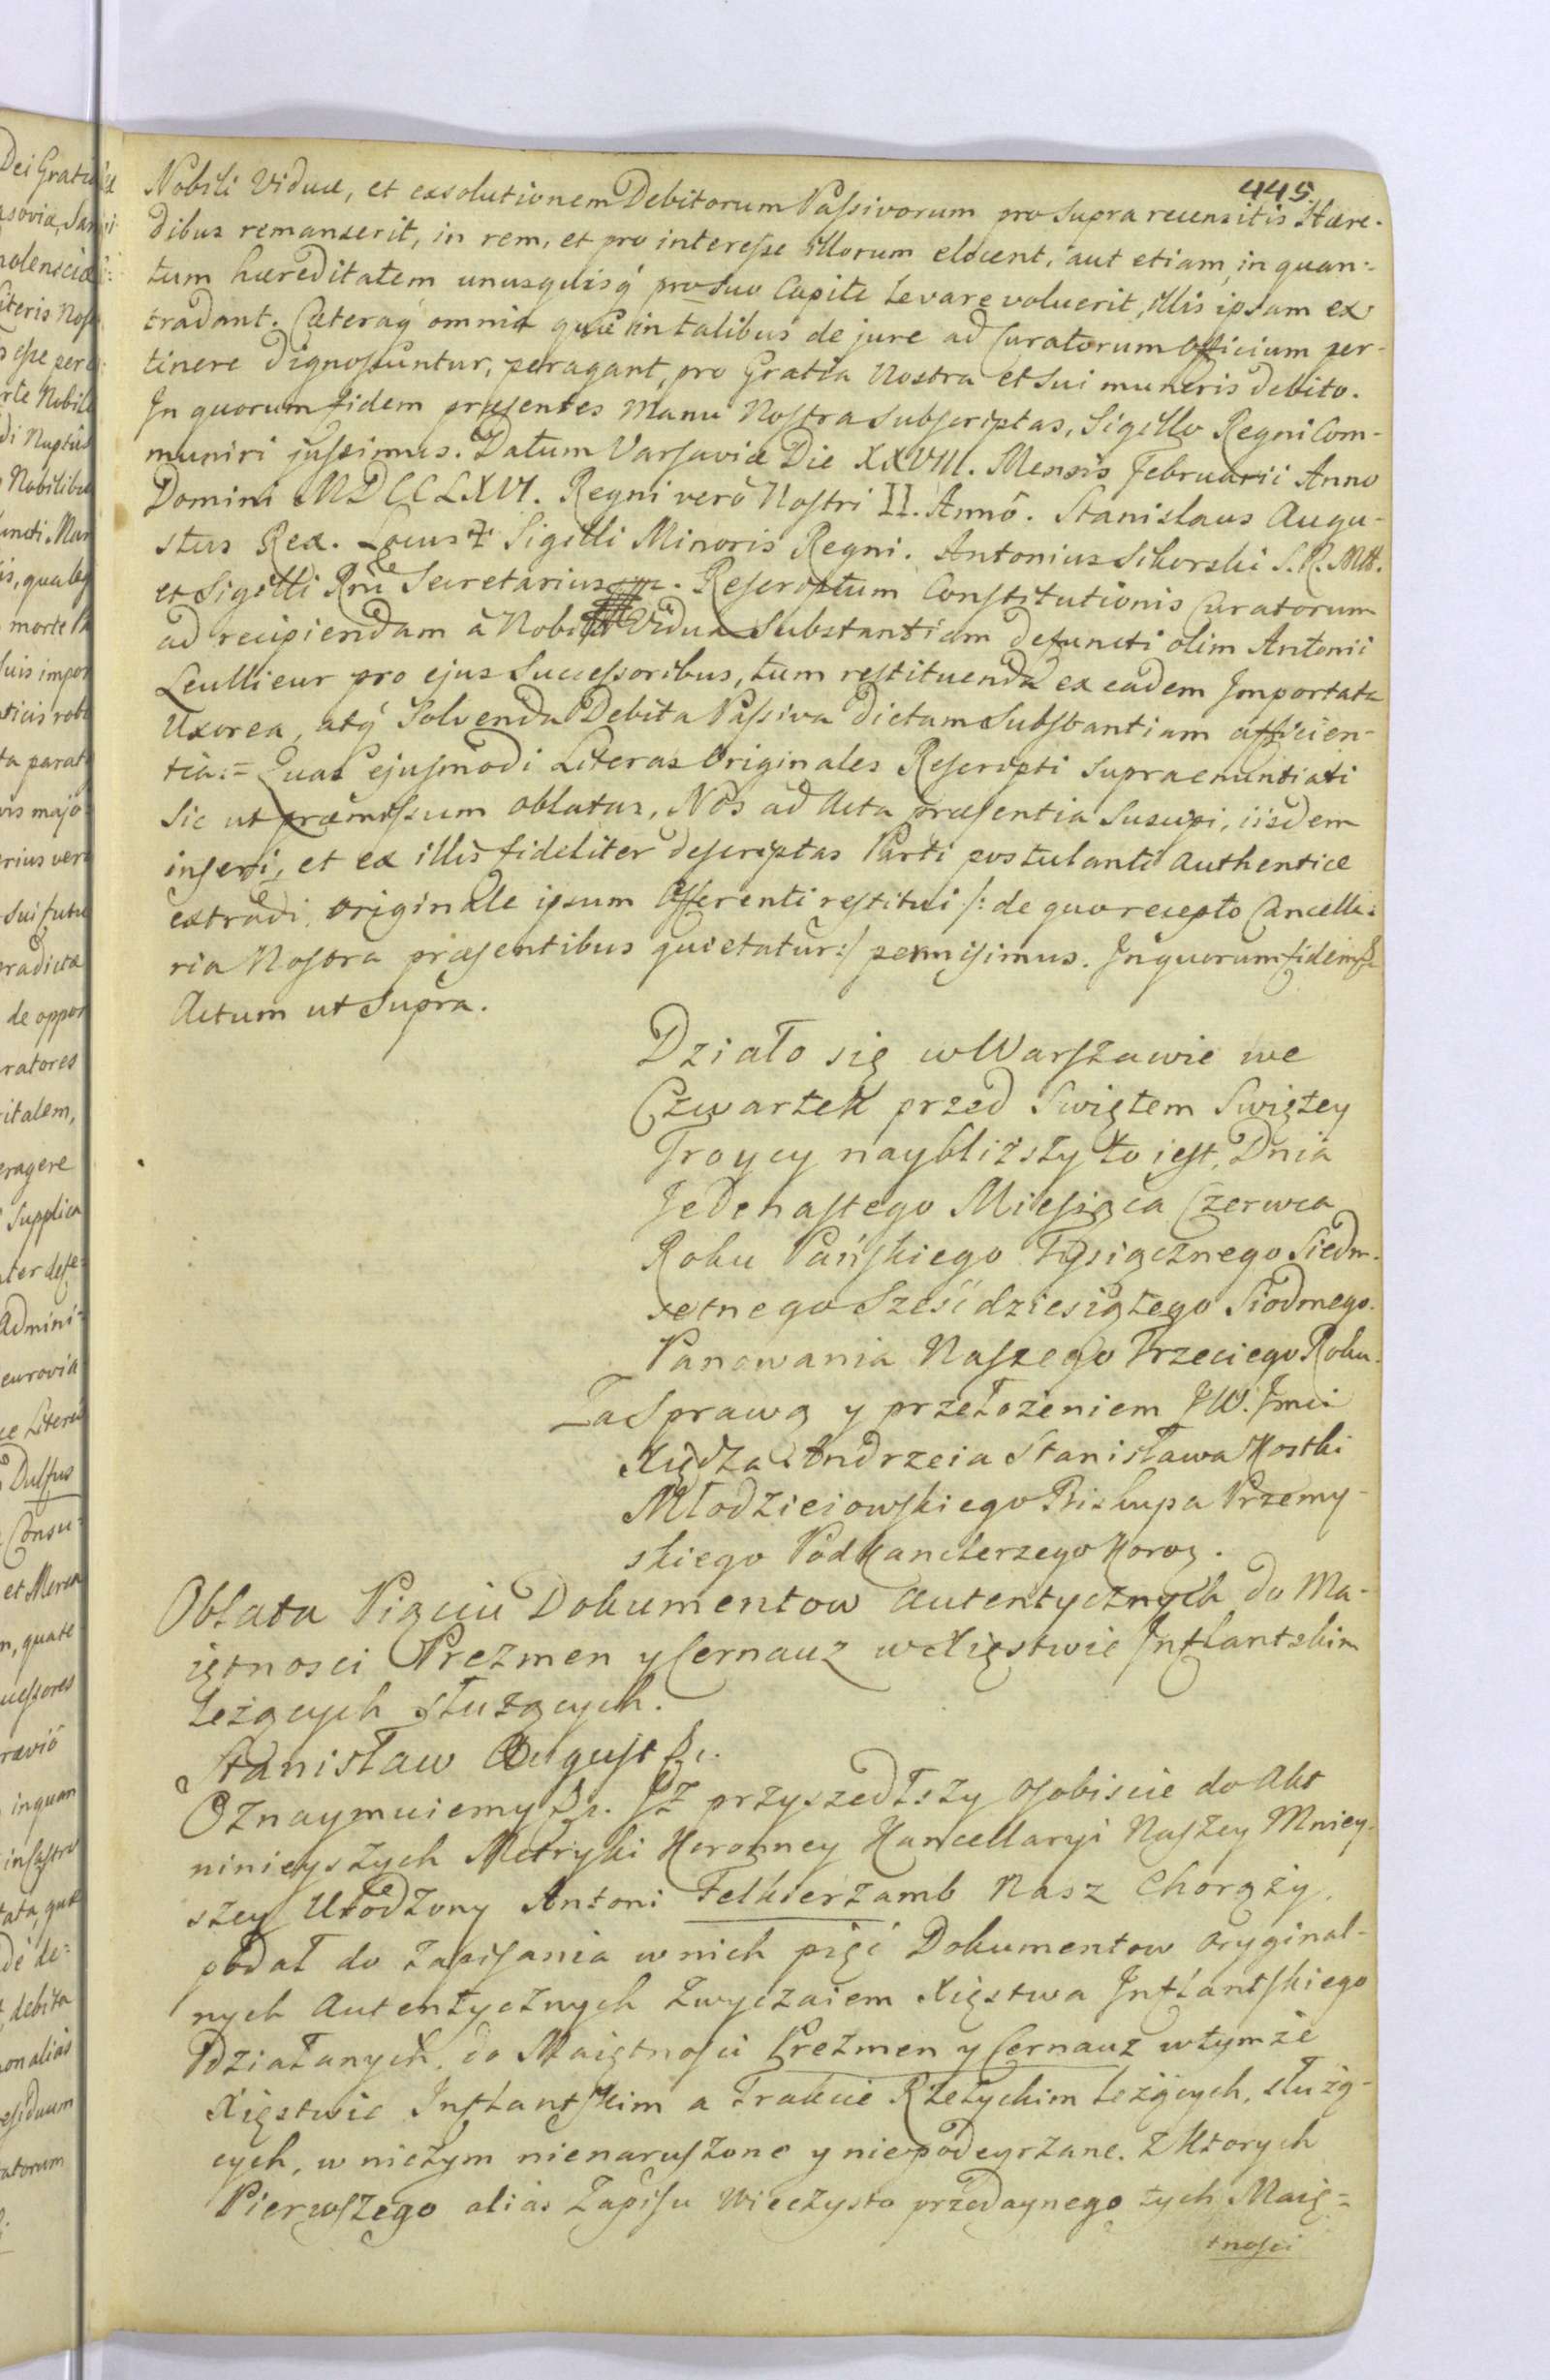 445.
Nobili Viduæ, et exsolutionem Debitorum Passivorum pro supra recensitis Hære-
dibus remanserit, in rem, et pro interesse illorum elocent, aut etiam, in quan-
tum hæreditatem unusquisq́ pro suo Capite levare voluerit, illis ipsam ex-
tradant. Cæteraq́ omnia quæ in talibus de jure ad Curatorum Officium per-
tinere dignoscuntur, peragant, pro Gratia Nostra et sui muneris debito.
In quorum fidem præsentes Manu Nostra subscriptas, Sigillo Regni Com-
muniri jussimus. Datum Varsaviæ Die XXVIII. Mensis Februarii Anno
Domini MDCCLXVI. Regni verò Nostri II. Annô. Stanislaus Augu-
stus Rex. Locus Sigilli Minoris Regni. Antonius Sikorski S. R. Mtt.
et Sigilli Rni Secretarius. Rescriptum Constitutionis Curatorum
ad recipiendam à Nobili Vidua Substantiam defuncti olim Antonii
Leullieur pro ejus Successoribus, tum restituenda ex eadem Importata
Uxorea, atq́ Solvenda Debita Passiva dictam Substantiam afficien-
tia:= Quas ejusmodi Literas Originales Rescripti supra enuntiati
sic ut præmissum oblatas, Nos ad Acta præsentia Suscipi, iisdem
inseri, et ex illis fideliter descriptas Parti postulanti authentice
extradi, originale ipsum Offerenti restitui /: de quo recepto Cancella-
ria Nostra præsentibus quietatur:/ permisimus. In quorum fidem &
Actum ut Supra.
Działo się w Warszawie we
Czwartek przed Swiętem Swiętey
Troycy naybliższy to iest, Dnia
Jedenastego Miesiąca Czerwca
Roku Pańskiego Tysiącznego Siedm-
setnego Sześćdziesiątego Siodmego.
Panowania Naszego Trzeciego Roku.
Za Sprawą y przełożeniem JW. Jmci
Xiędza Andrzeia Stanisława Kostki
Młodzieiowskiego Biskupa Przemy-
skiego Podkanclerzego Koroz.
Oblata Pięciu Dokumentow autentycznych do Ma-
iętnosci Prezmen y Cernauz w Xięstwie Inflantskim
leżących służących.
Stanisław August &c.
Oznaymuiemy &c. Iż przyszedłszy osobiscie do Akt
ninieyszych Metryki Koronney Kancellaryi Naszey Mniey-
szey Urodzony Antoni Felkierzamb Nasz Chorąży,
podał do zapisania w nich pięć Dokumentow oryginal-
nych autentycznych zwyczaiem Xięstwa Inflantskiego
działanych, do Maiętnosci Prezmen y Cernauz w tymże
Xięstwie Inflantskim a Trakcie Rzeżyckim leżących, służą-
cych, w niczym nienaruszone y niepodeyrzane. Z ktorych
Pierwszego alias Zapisu Wieczysto przedaynego tych Maię-
tnosci